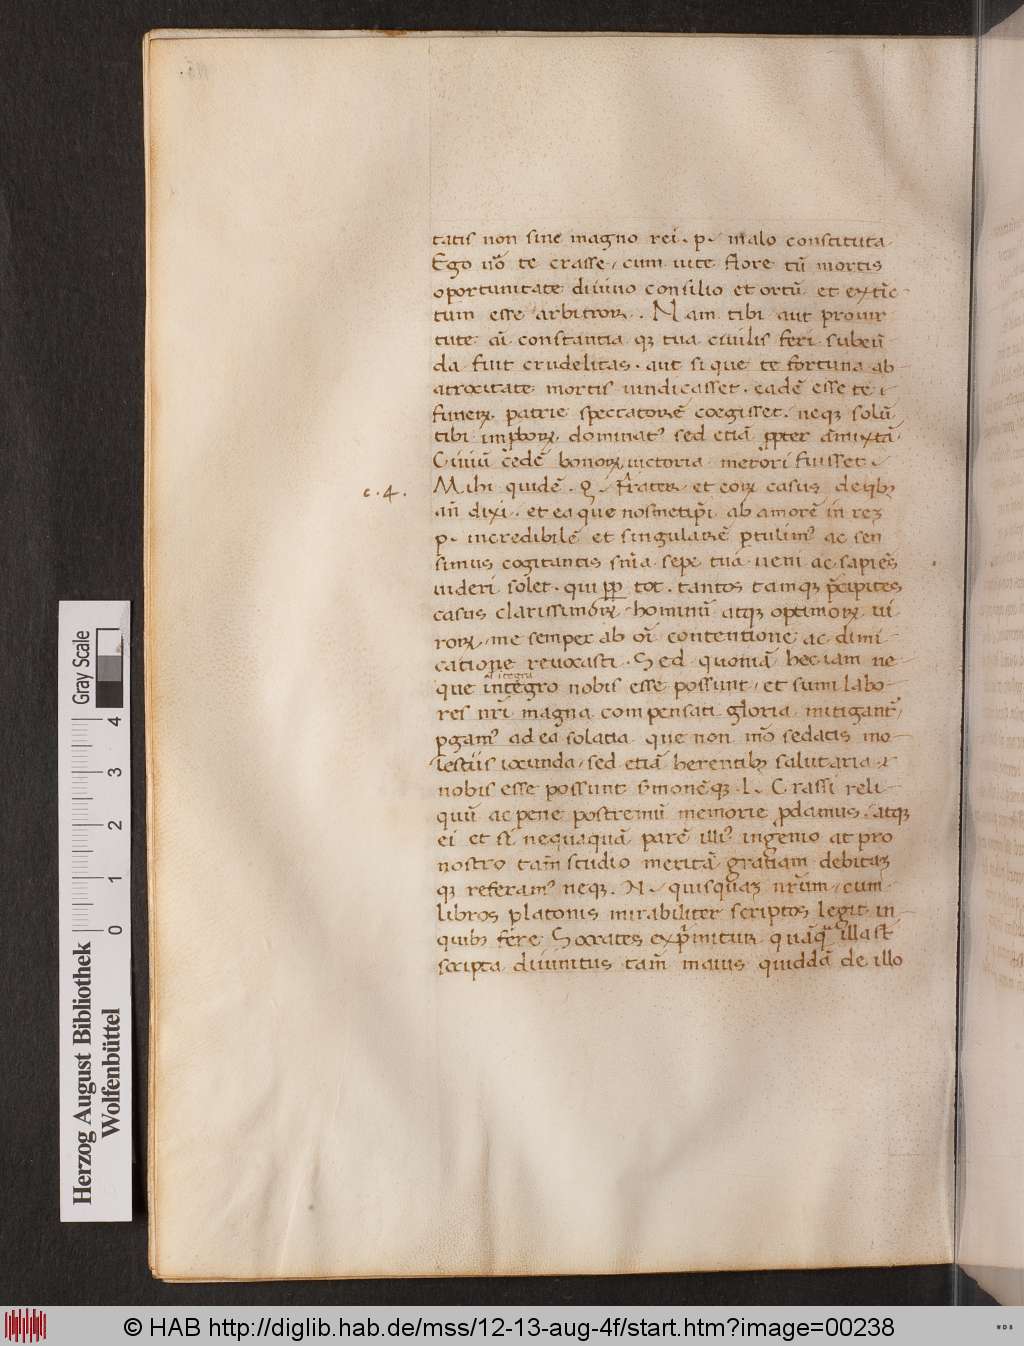 tatis non sine magno rei. p. malo constituta
Ego uō te crasse, cum uite flore tū mortis
oportunitate diuino consilio et ortū et extīc
tum esse arbitror. Nam tibi aut pro uir
tute aī constantia qꝫ tua ciuilis feri subeū
da fuit crudelitas. aut si que te fortuna ab
atrocitate mortis uindicasset. eadē esse te
funerꝝ patrie spectatorē coegisset. neqꝫ solū
tibi dominatꝰ sed etiā ꝓpter
Ciuiū cedē bonorꝝ uictoria merori fuisset.
c. 4.
Mihi quidē. Q. frater et eorꝝ casus de qibꝫ
añ dixi. et ea que nosmetipi ob amorē in rēꝫ
p. incredibilē et singularē ptulimꝰ ac sen
simus cogitantis snīa sepe tua ueni ac sapiēs
uideri solet. qui ꝓp tot. tantos tamqꝫ p̄cipites
casus clarissimorꝝ hominū atqꝫ optimorꝝ ui
rorꝝ, me semper ab oī contentione ac dimi
catione reuocasti. Sed quoniā hec iam ne
al itegra
que integro nobis esse possunt, et sumi labo
res nr̄i magna compensati gloria mitigantꝰ,
pgamꝰ ad ea solatia que non mō sedatis mo
lestiis iocunda, sed etiā herentibꝫ salutaria
nobis esse possunt s̄monēqꝫ. L. Crassi reli
quū ac pene postremū memorie pdamus. atqꝫ
ei et si nequaquā parē illiꝰ ingenio at pro
nostro tam̄ studio meritā gratiam debitaꝫ
qꝫ referamꝰ neqꝫ. N. quisquaꝫ nr̄um, cum
libros platonis mirabiliter scriptos legit in
quibꝫ fere Socrates exp̄mitur quāqꝫ illa sr̄
scripta diuinitus tam̄ maius quiddā de illo
Gray Scale
0 1 2 3 4
Herzog August Bibliothek
Wolfenbüttel
© HAB http://diglib.hab.de/mss/12-13-aug-4f/start.htm?image=00238